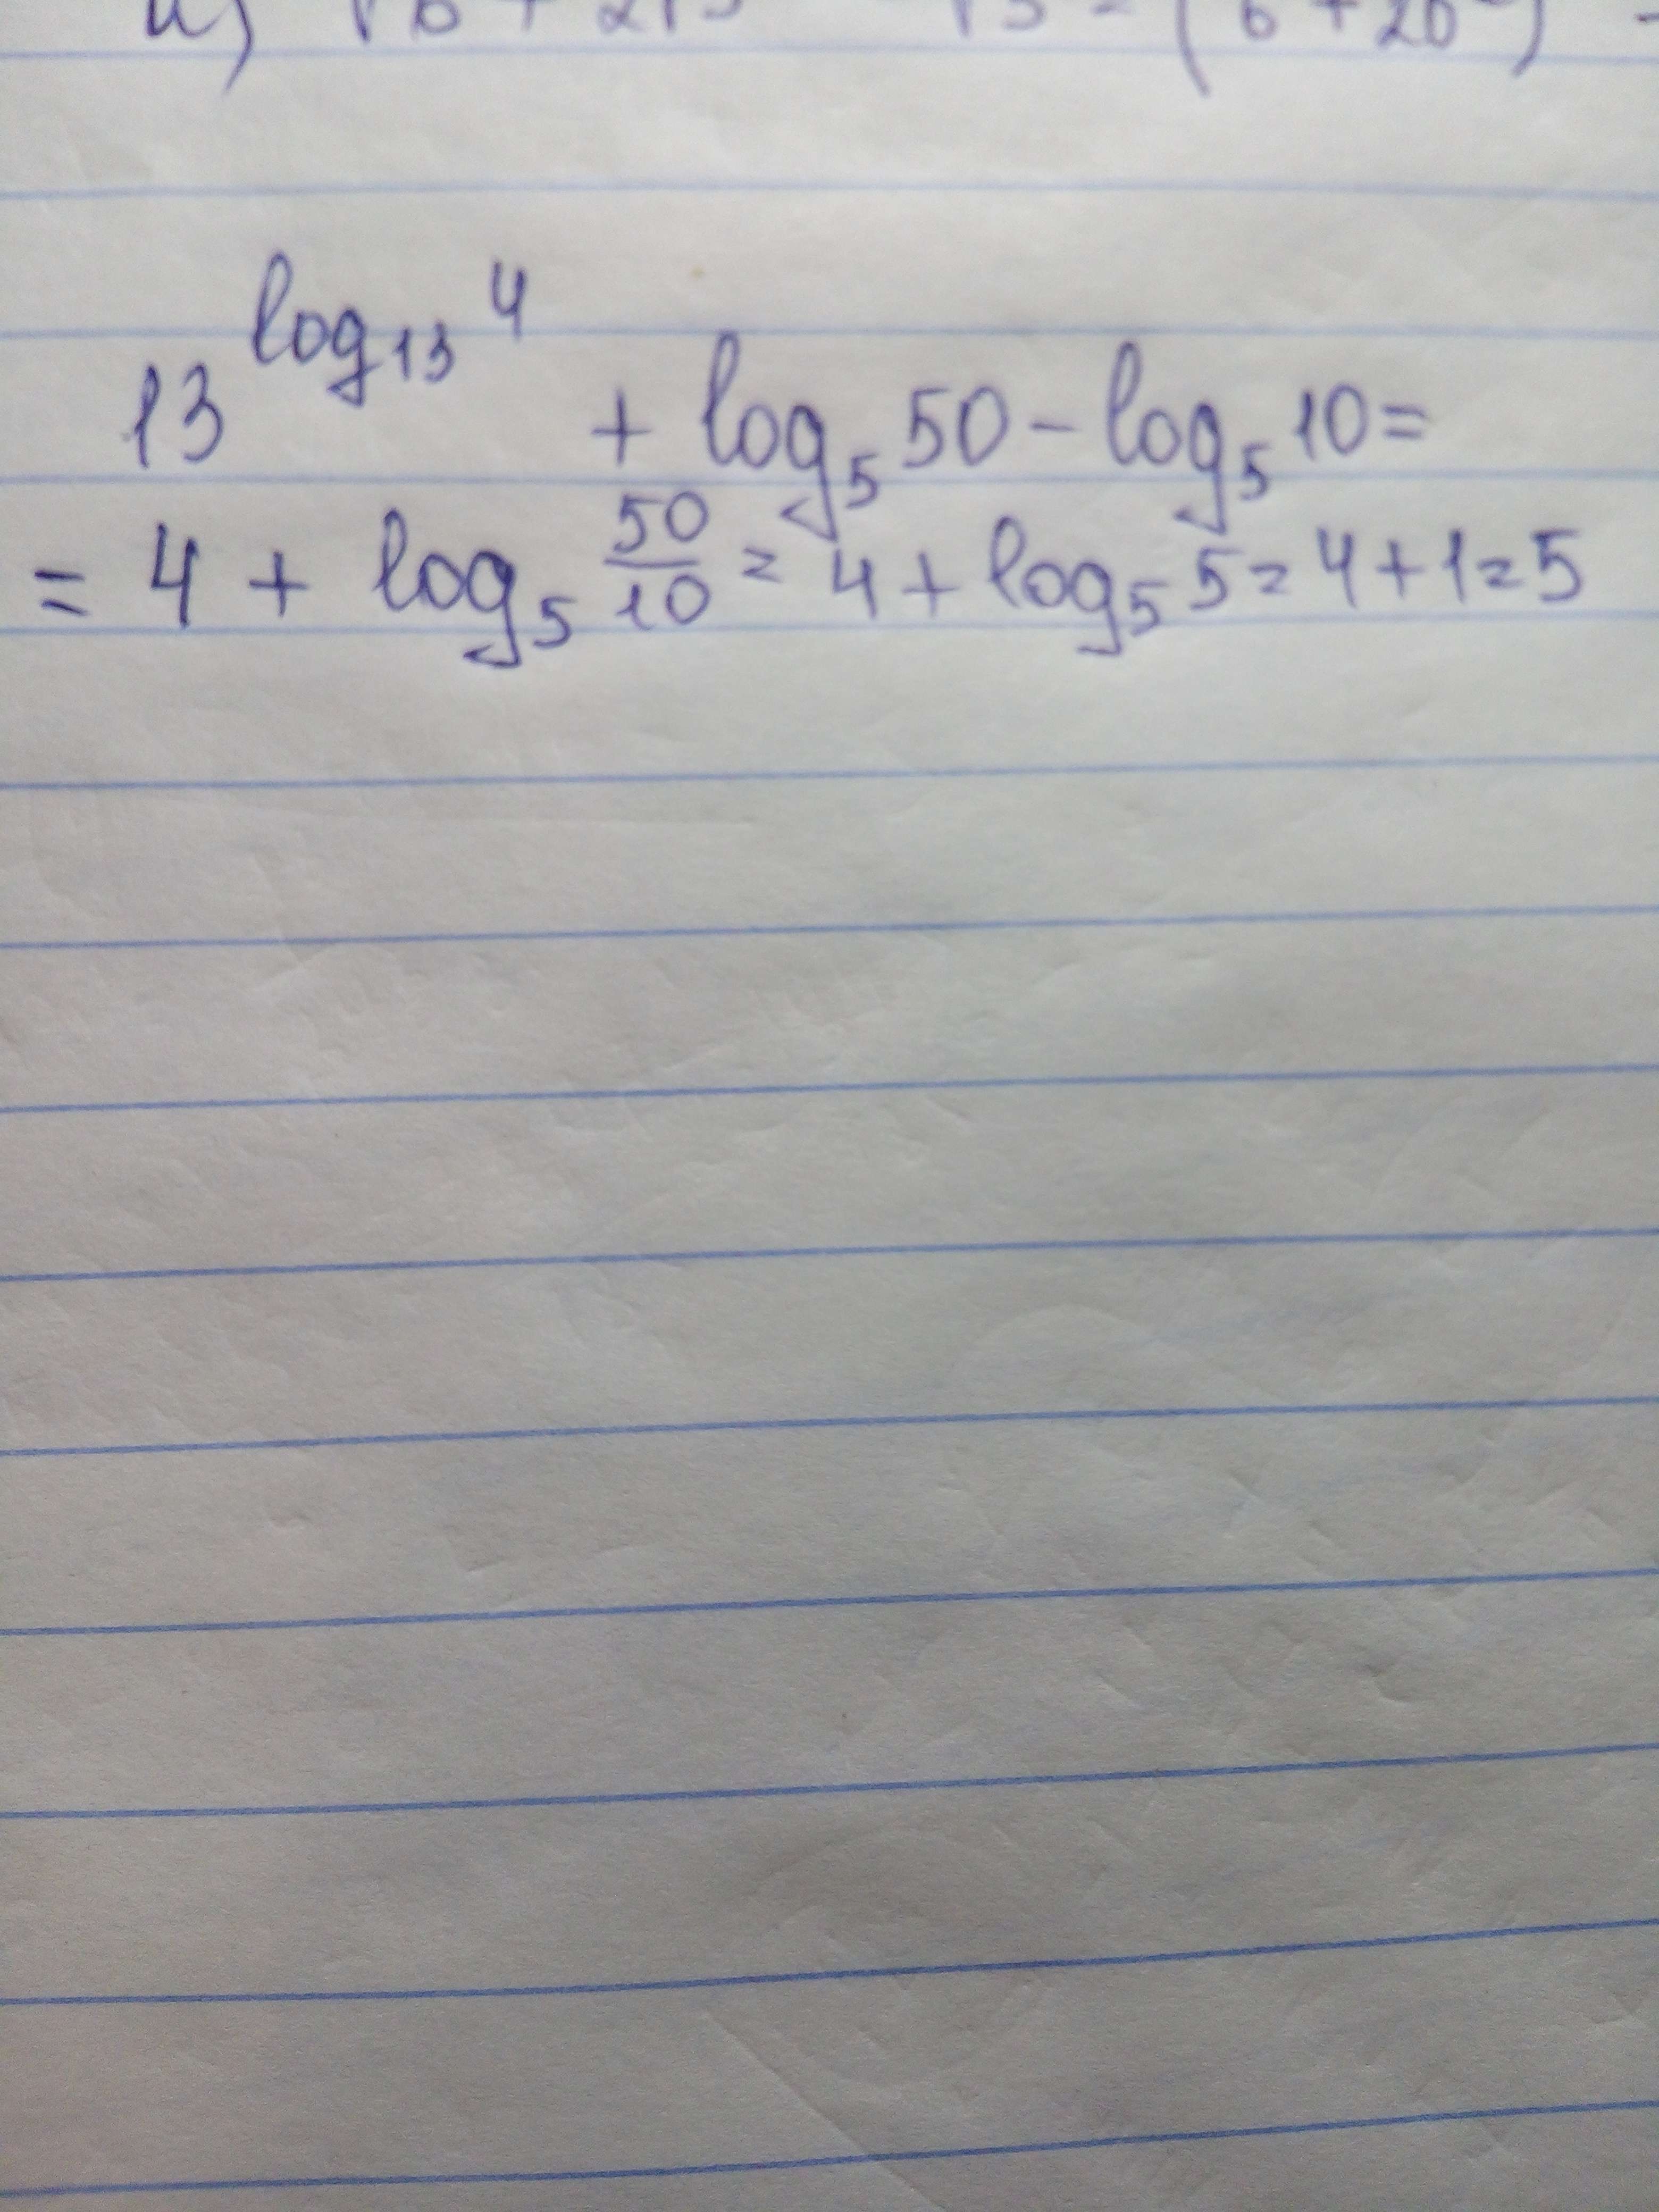 13^log₁₃4 + log₅50 - log₅10 =
= 4 + log₅ 50/10 = 4 + log₅5 = 4 + 1 = 5